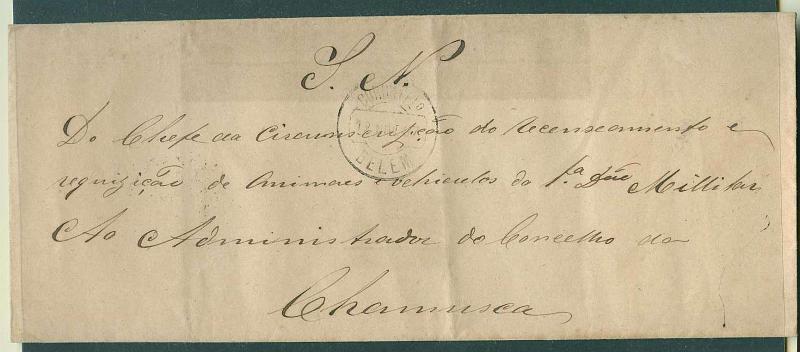 S. N.
BELEM
Do Chefe da Circunscripção do recenseamento e
requizição de Animaes e vehiculos da 1.ª Dão Millitar
Ao Administrador do Concelho da
Chamusca